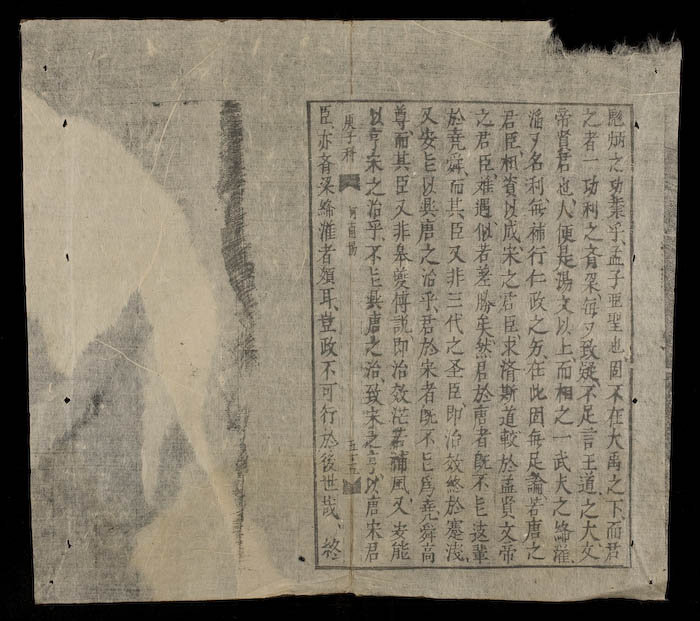 之功業乎孟子亜聖也固不在大禹之下而君
之者一功利之斉梁每又致疑不足言王道之大文
帝賢君也人便是湯文以上而相之一武夫之絳灌
又名利每補行仁政之分在此固每足論若唐之
君臣相資以成宋之君臣求済斯道較於孟賢文帝
之君臣难遇似若差勝矣然君於唐者既不㠯这輩
於尭舜而其臣又非三代之圣臣即治效終於蹇浅
又安㠯以興唐之治乎君於宋者既不㠯爲尭舜高
尊而其臣又非皋夔傳説即治效茫若浦風又安能
以亨宋之治乎不㠯興唐之治致宋之亨以唐宋君
庚子科 五十五
臣亦斉梁絳灌者類耳豈政不可行於後世哉 終